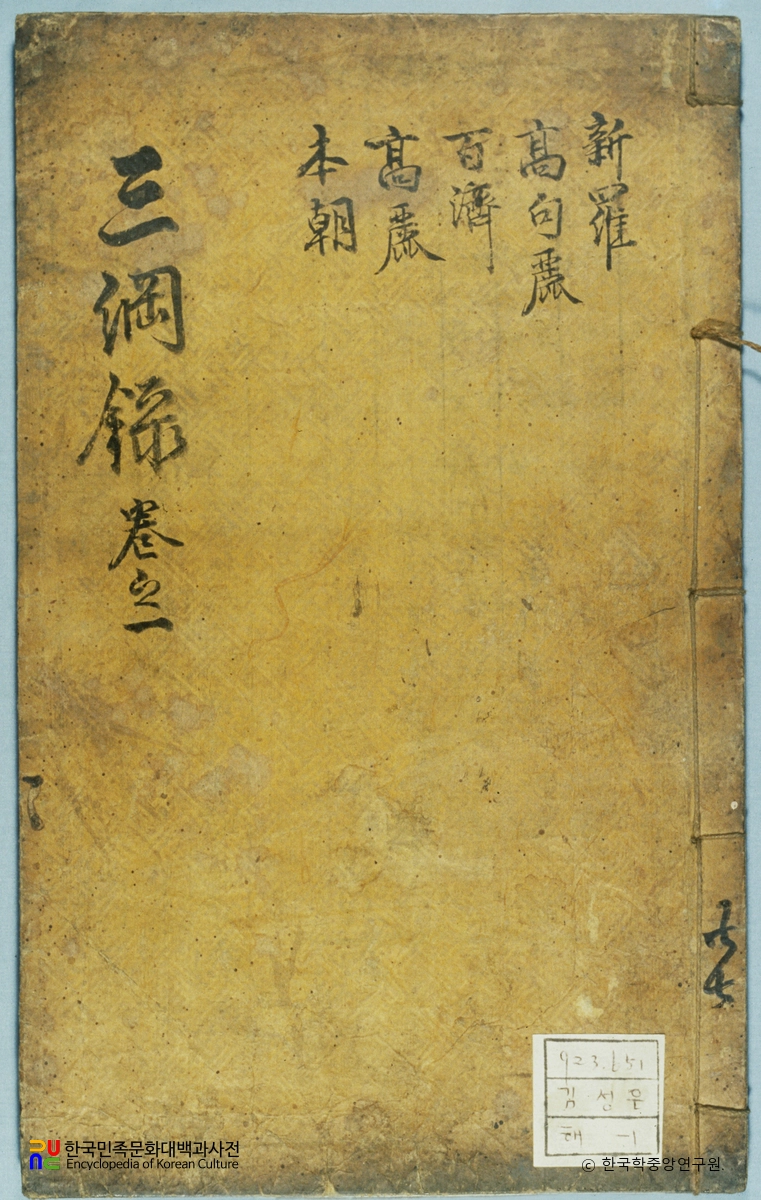 新羅
高句麗
百濟
高麗
本朝
三綱錄 卷之一
共七
923.651
김성은
해-1
한국민족문화대백과사전
Encyclopedia of Korean Culture
© 한국학중앙연구원